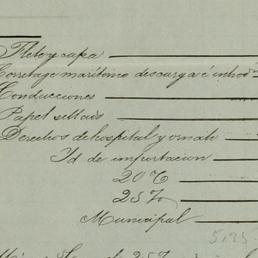 Flete y capa
Corretage maritimo descarga é introd
Conducciones
Papel sellado
Derechos de hospital y ornato
Id de importacion
20 %
25 %
Municipal
5.95
25 %